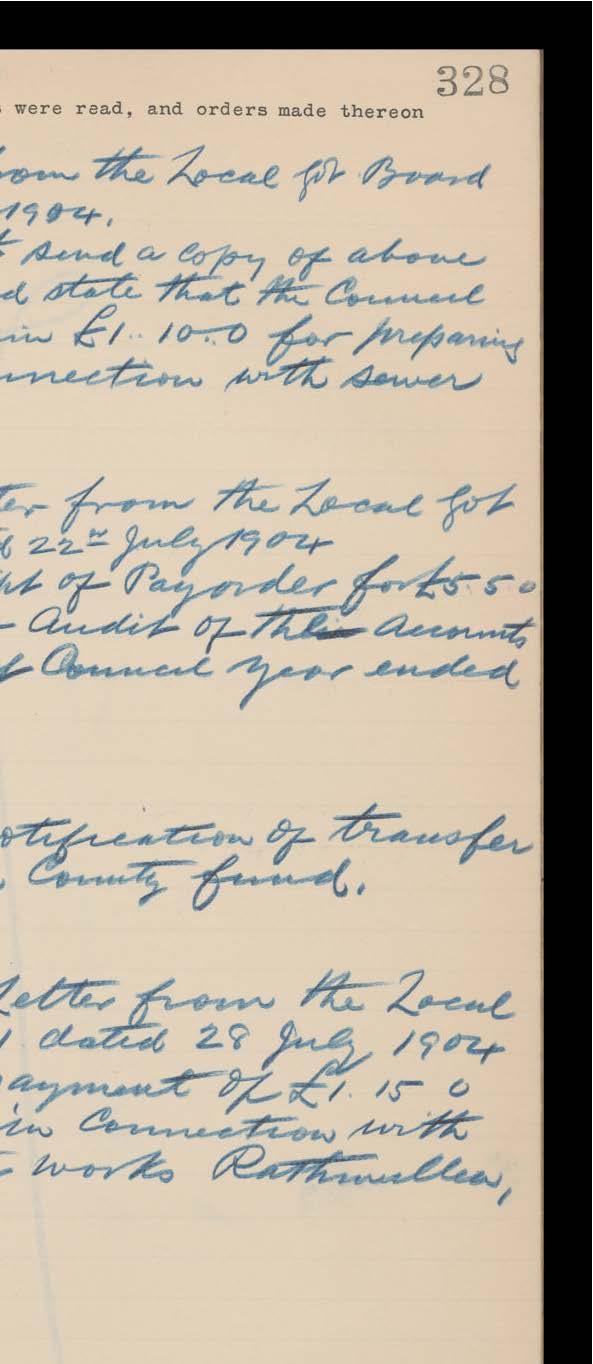 328
s were read, and orders made thereon
om the Local Gov Board
1904.
send a copy of above
d state that the Council
in £1..10..0 for preparing
nnection with sewer
ter from the Local Govt
22nd July 1904
pt of Payorder for £5.5.0
Audit of the Accounts
Council year ended
otification of transfer
County fund.
Letter from the Local
dated 28 July 1904
ayment of £1. 15 0
in Connection with
works Rathmullen,